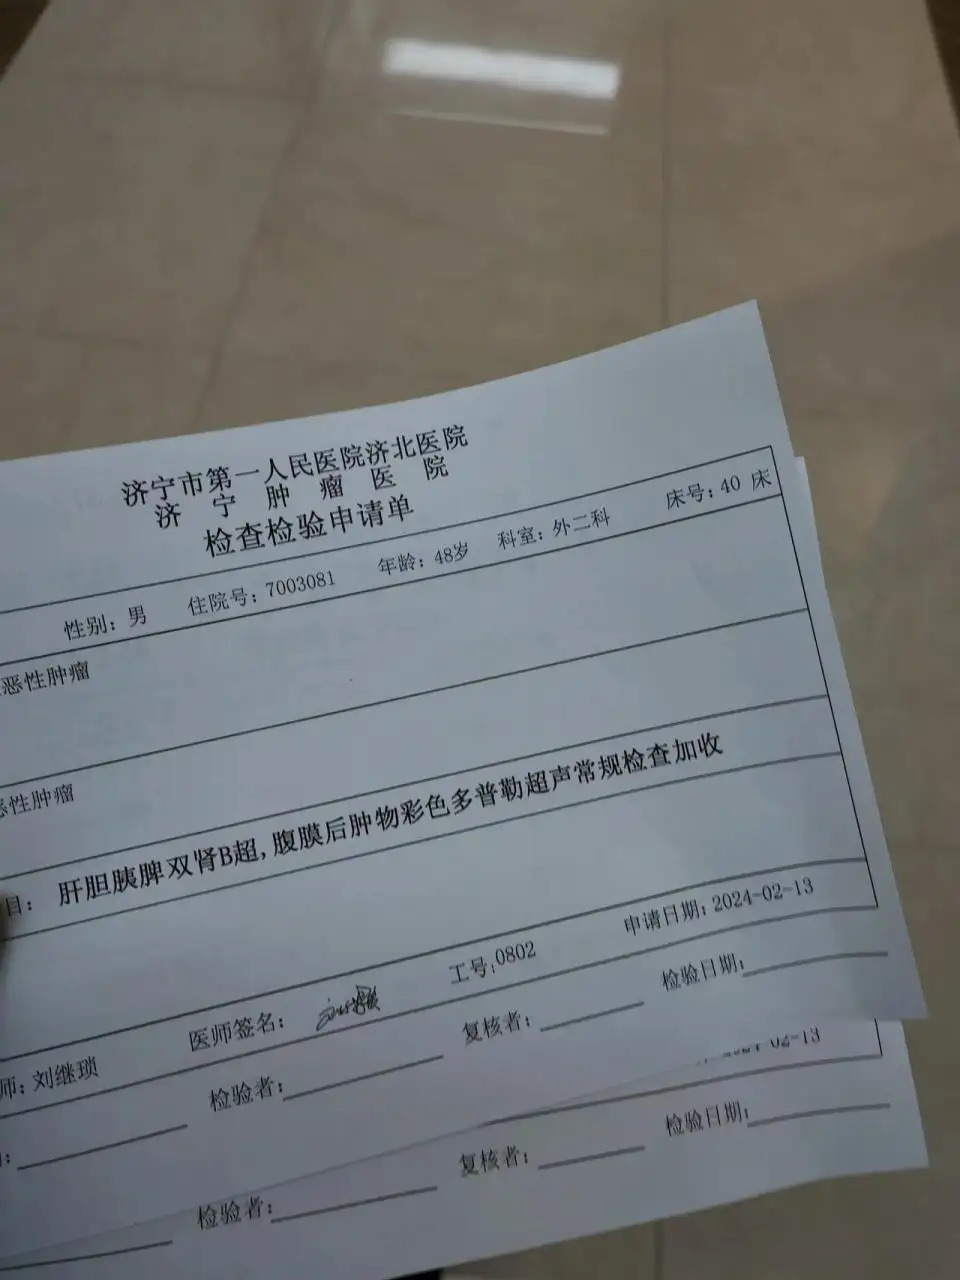 济宁市第一人民医院济北医院
济宁肿瘤医院
检查检验申请单
性别：男 住院号：7003081 年龄：48岁 科室：外二科 床号：40 床
恶性肿瘤
恶性肿瘤
目： 肝胆胰脾双肾B超,腹膜后肿物彩色多普勒超声常规检查加收
申请日期：2024-02-13
师：刘继琐 医师签名： 工号：0802
检验者： 复核者： 检验日期：
02-13
检验者： 复核者： 检验日期：